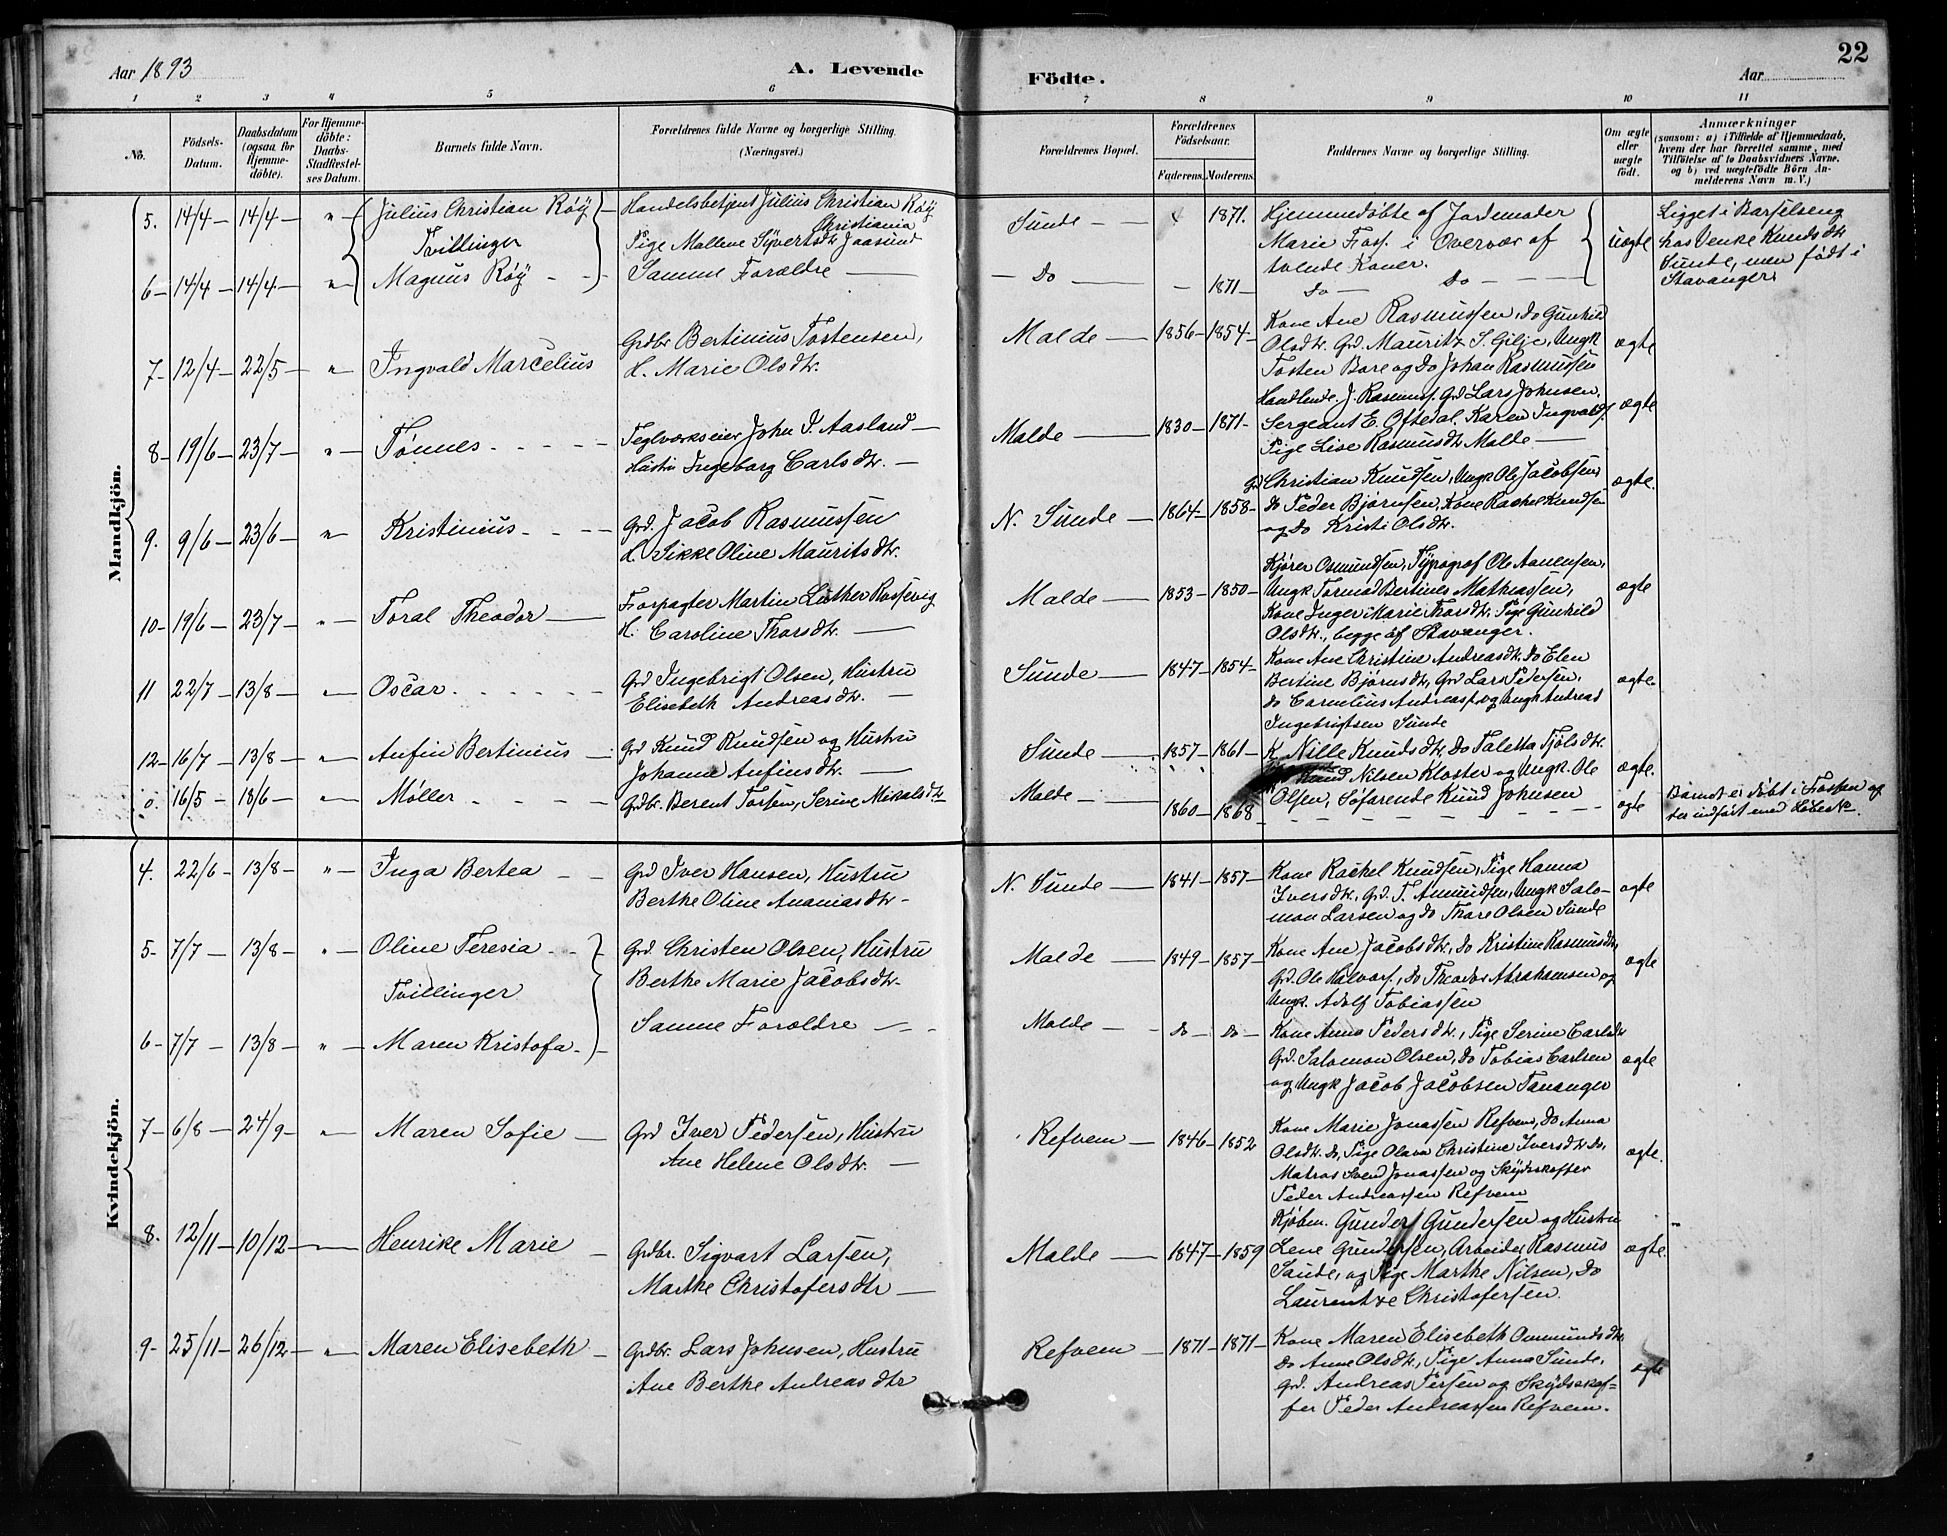 22
Aar 1893
A. Levende
Födte.
Aar
1 2 3 4 5 6 7 8 9 10 11
No.
Födsels-
Datum.
Daabsdatum
(ogsaa for
Hjemme-
döbte).
For Hjemme-
döbte:
Daabs-
Stadfæstel-
ses Datum.
Barnets fulde Navn.
Forældrenes fulde Navne og borgerlige Stilling.
(Næringsvei.)
Forældrenes Bopæl.
Forældrenes
Födselsaar.
Faderens. Moderens.
Faddernes Navne og borgerlige Stilling.
Om ægte
eller
uægte
födt.
Anmærkninger
(saasom: a) i Tilfælde af Hjemmedaab,
hvem der har forrettet samme, med
Tilföielse af to Daabsvidners Navne,
og b) ved uægtefödte Börn An-
melderens Navn m. V.)
Mandkjön.
5. 14/4 14/4 " Julius Christian Røÿ
Tvillinger
Handelsbetjent Julius Christian Røÿ
Christiania
Pige Mallene Syvertsdtr Jaasund
Sunde 1871.
Hjemmedøbte af Jordemoder
Marie Foss. i Overvær af
tvende Koner.
uægte
Ligget i Barselseng
hos Venke Knudsdtr
Sunde, men født i
Stavanger.
6 14/4 14/4 " Magnus Røÿ
Samme Forældre
Do 1871
Do Do
7 12/4 22/5 " Ingvald Marcelius
Grdbr Bertinius Tostensen,
H. Marie Olsdtr.
Malde 1856 1854
Kone Ane Rasmussen, Do Gunhild
Olsdtr. Grd. Mauritz S. Gilje, Ungk
Tosten Bore og Do Johan Rasmussen
ægte
8 19/6 23/7 " Tønnes
Teglværkseier John T. Aasland
Hustru Ingeborg Carlsdtr.
Malde 1830 1871
Handlende. J. Rasmuss. Grd Lars Johnsen,
Sergeant E. Oftedal. Karen Ingvalds.
Pige Lise Rasmusdtr Malde
ægte
9. 9/6 23/6 " Kristinius
Grd. Jacob Rasmussen
H. Sikke Oline Mauritsdtr.
N. Sunde 1864 1858
Grd Christian Knudsen, Ungk Ole Jacobsen,
Do Peder Bjørnsen, Kone Rachel Knudsen
og Do Kristi Olsdtr.
ægte.
10 19/6 23/7 " Toral Theodor
Forpagter Martin Luther Rossevig
H. Caroline Thorsdtr.
Malde 1853 1850
Kjører Osmundsen, Typograf Ole Aanensen,
Ungk Tormod Bertines Mathiassen,
Kone Inger Marie Thorsdtr. Pige Gunhild
Olsdtr., begge af Stavanger.
ægte
11 22/7 13/8 " Oscar.
Grd Ingebrigt Olsen, Hustru
Elisebeth Andreasdtr.
Sunde 1847 1854
Kone Ane Christine Andreasdtr. Do Elen
Bertine Bjørnsdtr, Grd Lars Pedersen,
Do Cornelius Andreass. og Ungk Andreas
Ingebrigtsen Sunde
ægte.
12 16/7 13/8 " Anfin Bertinius
Grd Knud Knudsen og Hustru
Johanna Anfinsdtr.
Sunde 1857 1861
K Nille Knudsdtr. Do Taletta Tjølsdtr.
Knud Nilsen Kloster og Ungk. Ole
Olsen, Søfarende Knud Johnsen
ægte.
0. 16/5 18/6 " Møller
Grdbr. Berent Torsen, Serine Mikalsdtr
Malde 1860 1868
ægte
Barnet er døbt i Fossen og
der indført med Løbe №.
Kvindekjön.
4. 22/6 13/8 " Inga Bertea
Grd Iver Hansen, Hustru
Berthe Oline Ananiasdtr
N. Sunde 1841 1857
Kone Rachel Knudsen, Pige Hanna
Iversdtr., Grd. T. Amundsen, Ungk Salo-
mon Larsen og Do Thore Olsen Sunde
ægte
5 7/7 13/8 " Oline Teresia
Tvillinger
Grd. Christen Olsen, Hustru
Berthe Marie Jacobsdtr.
Malde 1849 1857
Kone Ane Jacobsdtr., Do Kristine Rasmusdtr,
Grd. Ole Halvors., Do Theodor Abrahamsen og
Ungk. Adolf Tobiassen
ægte
6 7/7 13/8 " Maren Kristofa
Samme Forældre
Malde Do Do
Kone Anna Pedersdtr., Pige Serine Carlsdtr
Grd. Salomon Olsen, Do Tobias Carlsen
og Ungk Jacob Jacobsen Tananger
ægte
7 6/8 24/9 " Maren Sofie
Grd Iver Pedersen, Hustru
Ane Helene Olsdtr.
Refvem 1846 1852
Kone Marie Jonassen Refvem, Do Anna
Olsdtr. Do, Pige Olava Christine Iversdtr Do,
Matros Svend Jonassen og Skydsskaffer
Peder Andreassen Refvem
ægte.
8. 12/11 10/12 Henrike Marie
Grdbr. Sigvart Larsen,
Marthe Christofersdtr
Malde 1847 1859
Kjøbm. Gunder Gundersen og Hustru
Lene Gundersen, Arbeider Rasmus
Sande, og Pige Marthe Nilsen, Do
Laurentze Christofersen.
ægte.
9 25/11 26/12 " Maren Elisebeth
Grdbr. Lars Johnsen, Hustru
Ane Berthe Andreasdtr
Refvem 1871 1871
Kone Maren Elisebeth Ommundsdtr
Do Anne Olsdtr, Pige Anna Sunde,
Grd. Andreas Persen og Skydsskaf-
fer Peder Andreassen Refvem.
ægte